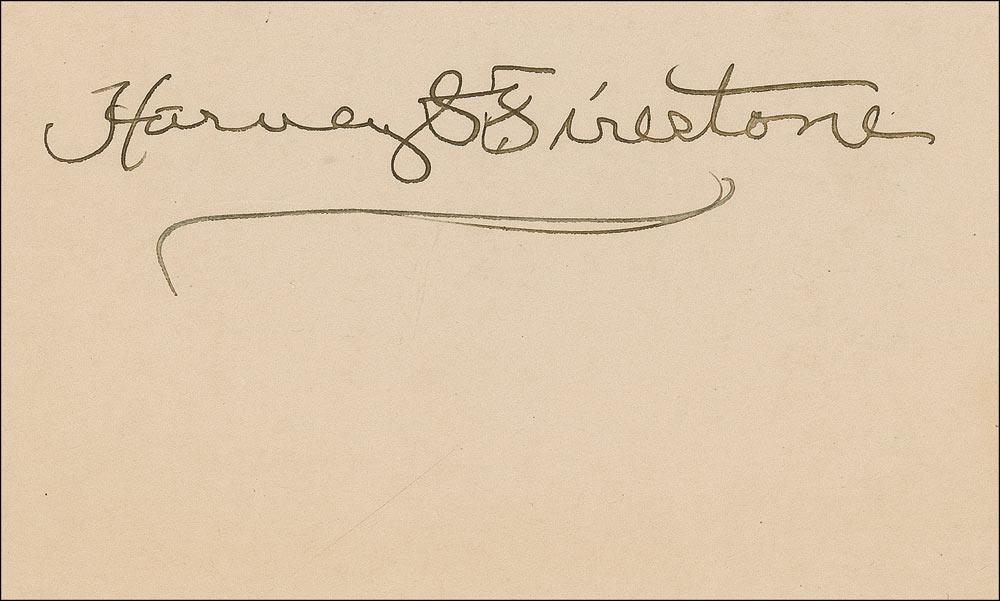 Harvey S Firestone